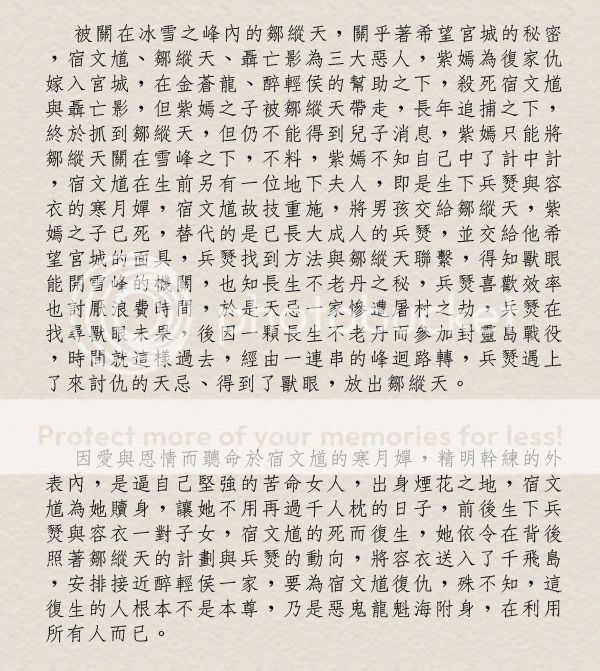 被關在冰雪之峰內的鄒縱天，關乎著希望宮城的秘密
，宿文馗、鄒縱天、聶亡影為三大惡人，紫嫣為復家仇
嫁入宮城，在金蒼龍、醉輕侯的幫助之下，殺死宿文馗
與聶亡影，但紫嫣之子被鄒縱天帶走，長年追捕之下，
終於抓到鄒縱天，但仍不能得到兒子消息，紫嫣只能將
鄒縱天關在雪峰之下，不料，紫嫣不知自己中了計中計
，宿文馗在生前另有一位地下夫人，即是生下兵燹與容
衣的寒月嬋，宿文馗故技重施，將男孩交給鄒縱天，紫
嫣之子已死，替代的是已長大成人的兵燹，並交給他希
望宮城的面具，兵燹找到方法與鄒縱天聯繫，得知獸眼
能開雪峰的機關，也知長生不老丹之秘，兵燹喜歡效率
也討厭浪費時間，於是天忌一家慘遭屠村之劫，兵燹在
找尋獸眼未果，後因一顆長生不老丹而參加封靈島戰役
，時間就這樣過去，經由一連串的峰迴路轉，兵燹遇上
了來討仇的天忌、得到了獸眼，放出鄒縱天。
photobucket
Protect more of your memories for less!
因愛與恩情而聽命於宿文馗的寒月嬋，精明幹練的外
表內，是逼自己堅強的苦命女人，出身煙花之地，宿文
馗為她贖身，讓她不用再過千人枕的日子，前後生下兵
燹與容衣一對子女，宿文馗的死而復生，她依令在背後
照著鄒縱天的計劃與兵燹的動向，將容衣送入了千飛島
，安排接近醉輕侯一家，要為宿文馗復仇，殊不知，這
復生的人根本不是本尊，乃是惡鬼龍魁海附身，在利用
所有人而已。